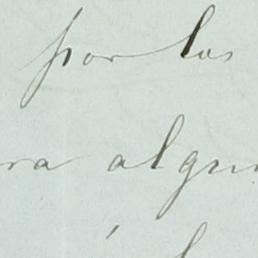 por los
ra algun